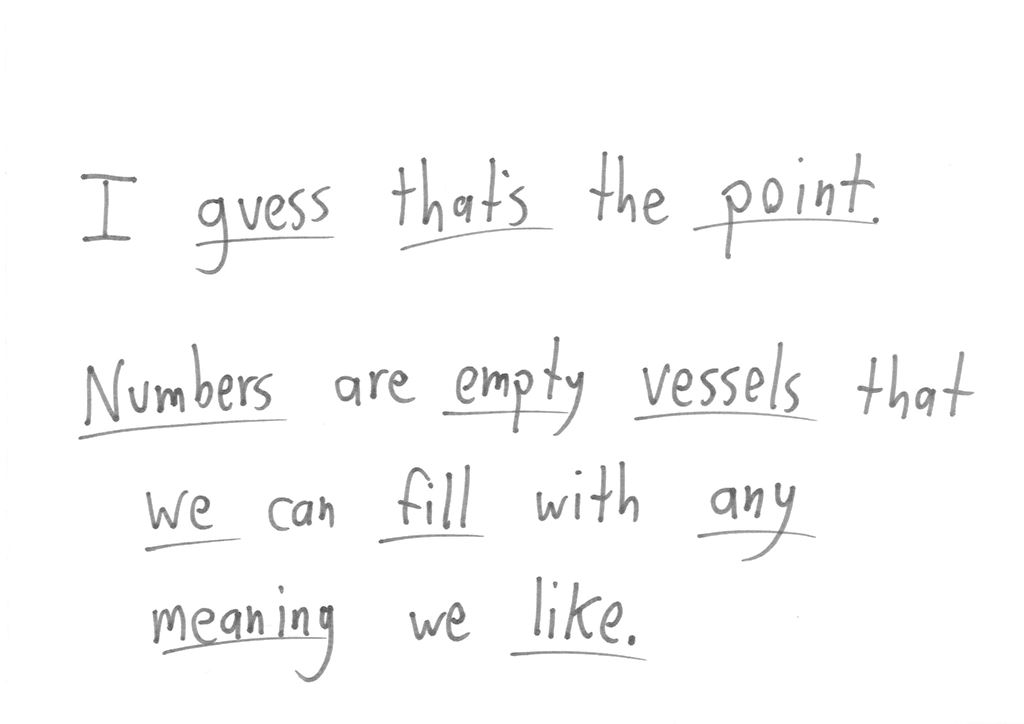 I guess that's the point.
Numbers are empty vessels that
we can fill with any
meaning we like.